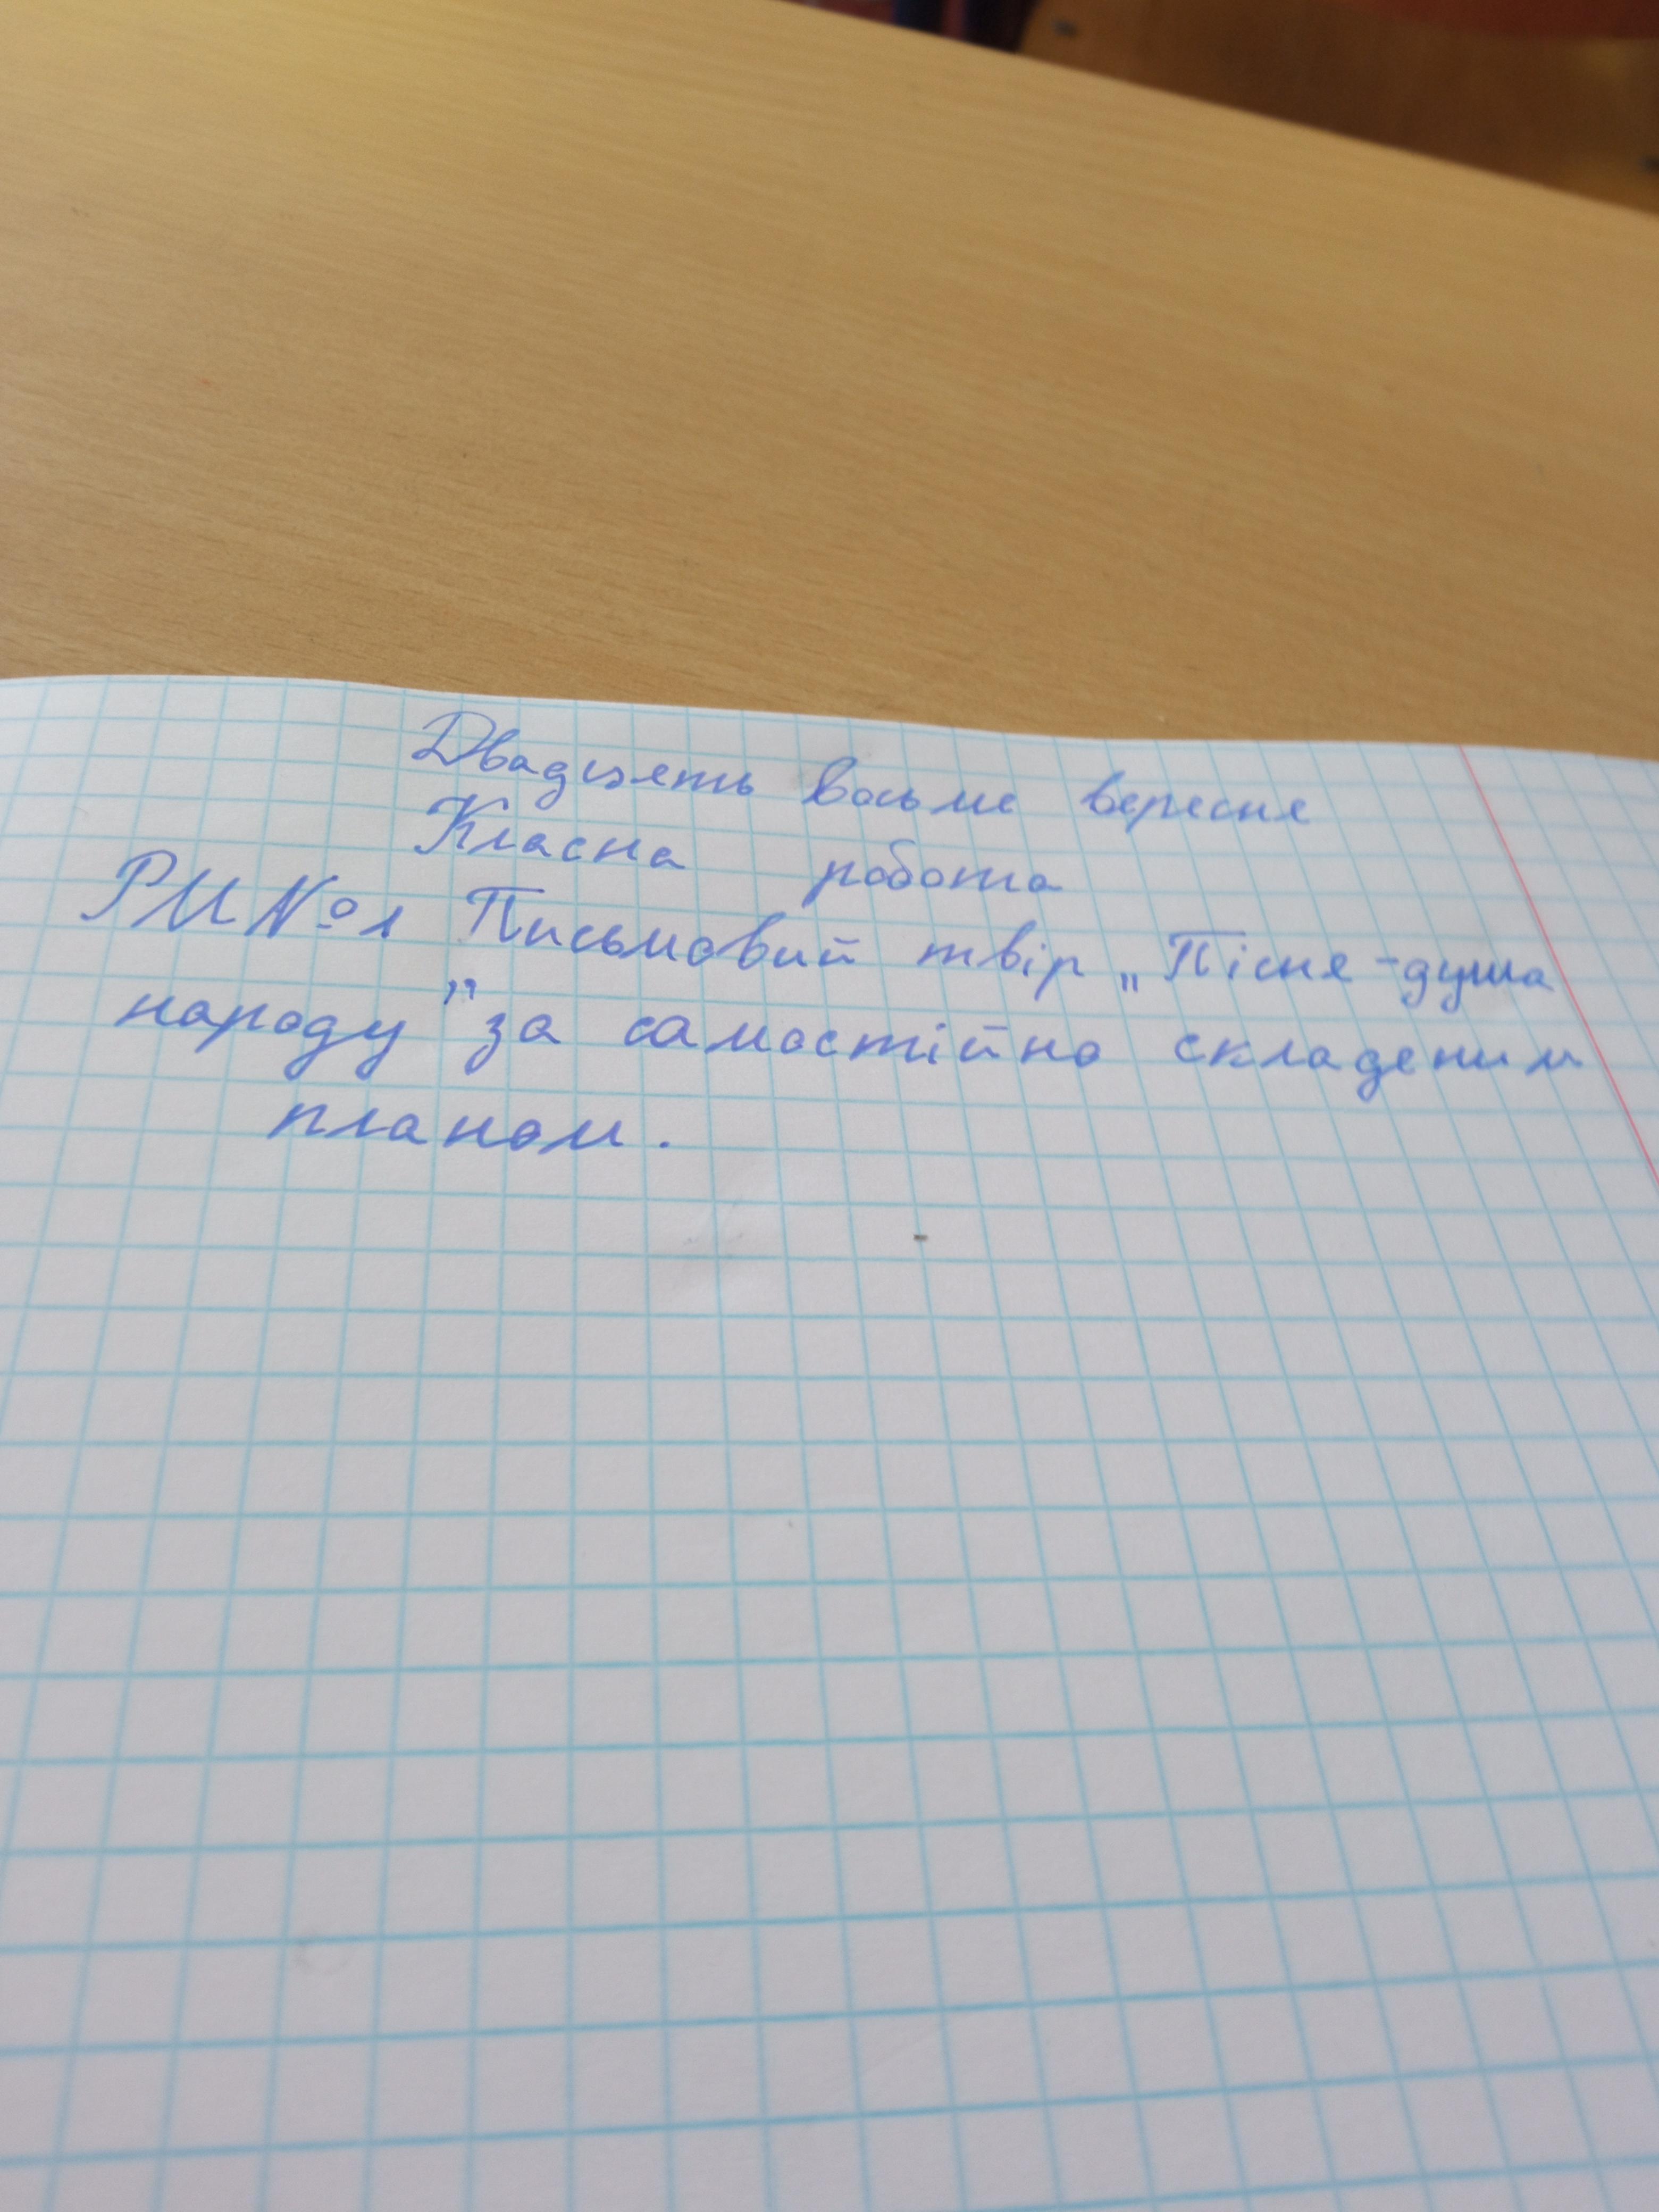 Двадцять восьме вересня
Класна робота
РМ №1 Письмовий твір „Пісня-душа
народу” за самостійно складеним
планом.